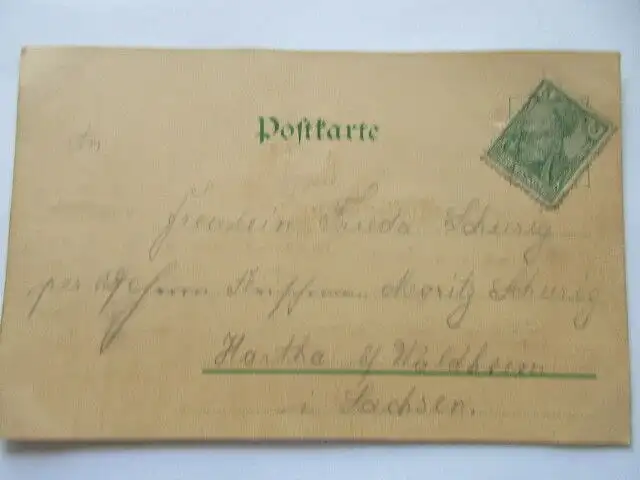 Postkarte
An
Fräulein Frieda Schurig
per Herrn Moritz Schurig
Hartha b/ Waldheim
i Sachsen.